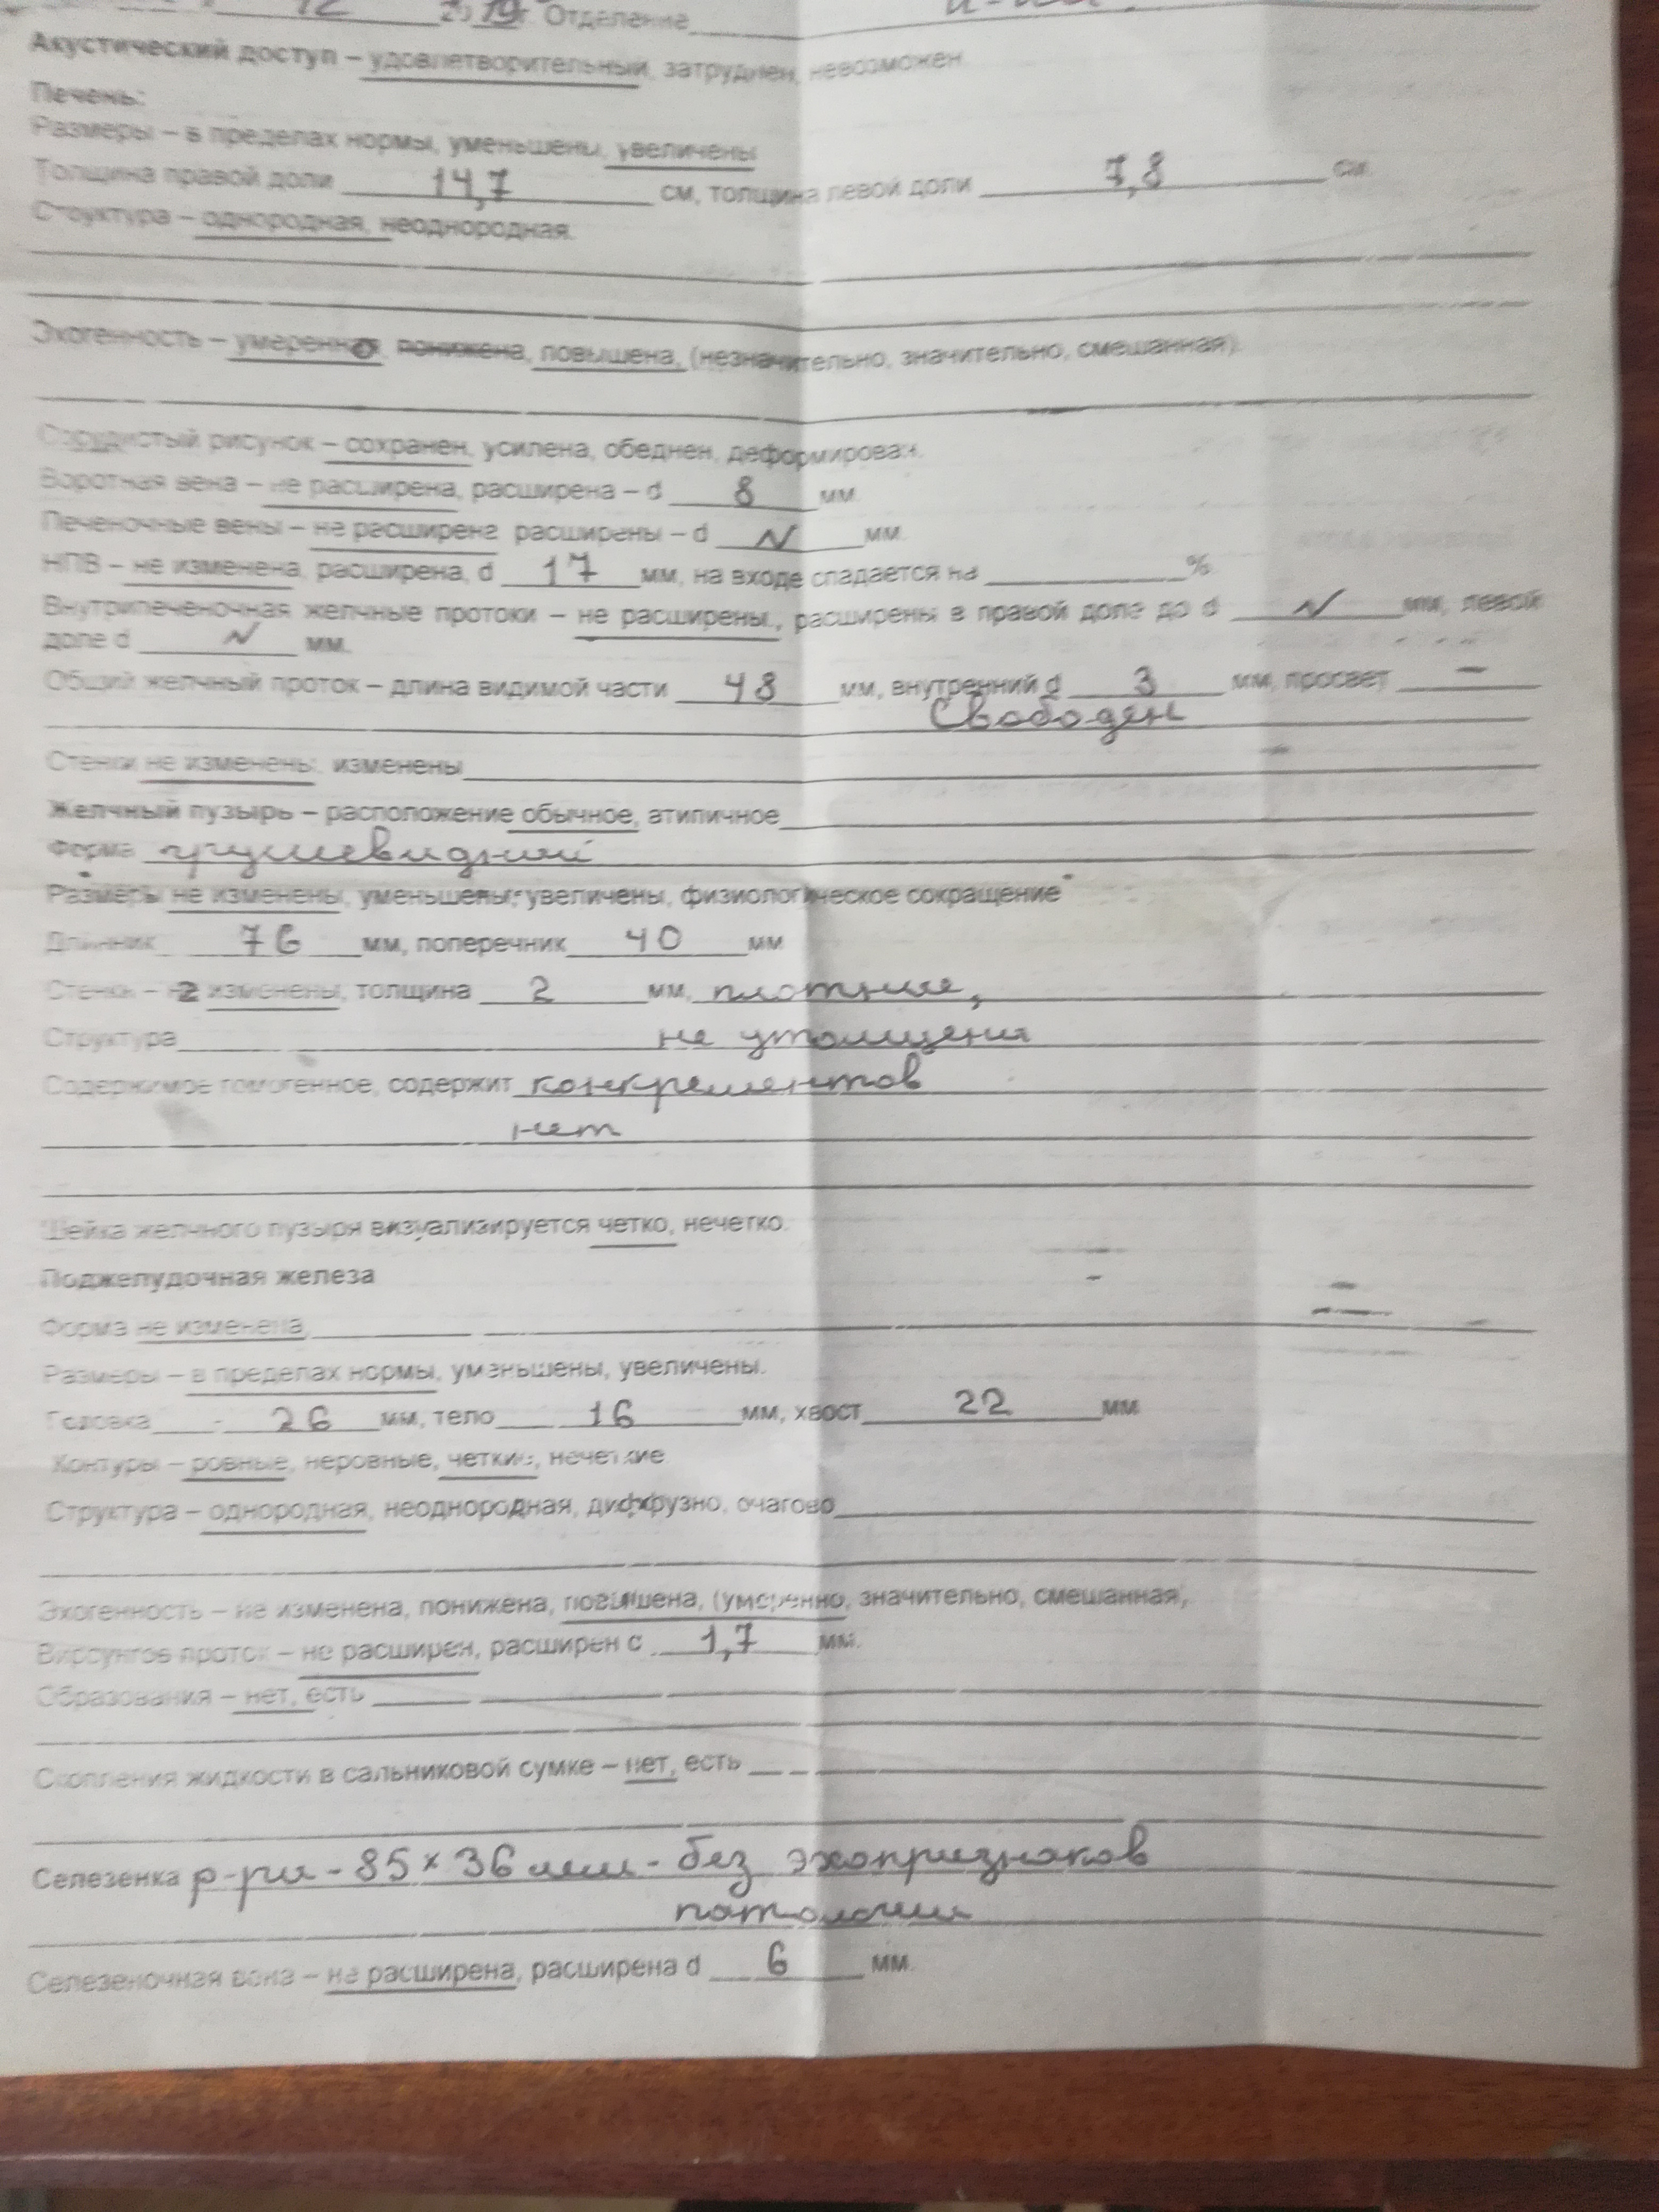 12 2019г. Отделение
Акустический доступ – удовлетворительный, затруднен, невозможен.
Печень:
Размеры – в пределах нормы, уменьшены, увеличены
Толщина правой доли 14,7 см, толщина левой доли 7,8 см
Структура – однородная, неоднородная.
Эхогенность – умеренно, понижена, повышена, (незначительно, значительно, смешанная).
Сосудистый рисунок – сохранен, усилена, обеднен, деформирован.
Воротная вена – не расширена, расширена – d 8 мм.
Печеночные вены – не расширена расширены – d N мм.
НПВ – не изменена, расширена, d 17 мм, на входе спадается на %
Внутрипеченочная желчные протоки – не расширены, расширены в правой доле до d N мм, левой
доле d N мм.
Общий желчный проток – длина видимой части 48 мм, внутренний d 3 мм, просвет –
Свободен
Стенки не изменены, изменены
Желчный пузырь – расположение обычное, атипичное
Форма грушевидный
Размеры не изменены, уменьшены, увеличены, физиологическое сокращение
Длинник 76 мм, поперечник 40 мм
Стенки – не изменены, толщина 2 мм, плотные,
Структура не утолщения
Содержимое гомогенное, содержит конкрементов
нет
Шейка желчного пузыря визуализируется четко, нечетко.
Поджелудочная железа
Форма не изменена,
Размеры – в пределах нормы, уменьшены, увеличены.
Головка 26 мм, тело 16 мм, хвост 22 мм
Контуры – ровные, неровные, четкие, нечеткие
Структура – однородная, неоднородная, диффузно, очагово
Эхогенность – не изменена, понижена, повышена, (умеренно, значительно, смешанная,
Вирсунгов проток – не расширен, расширен с 1,7 мм.
Образования – нет, есть
Скопления жидкости в сальниковой сумке – нет, есть
Селезенка р-ры - 85 х 36 мм - без эхопризнаков
патологии
Селезеночная вена – не расширена, расширена d 6 мм.